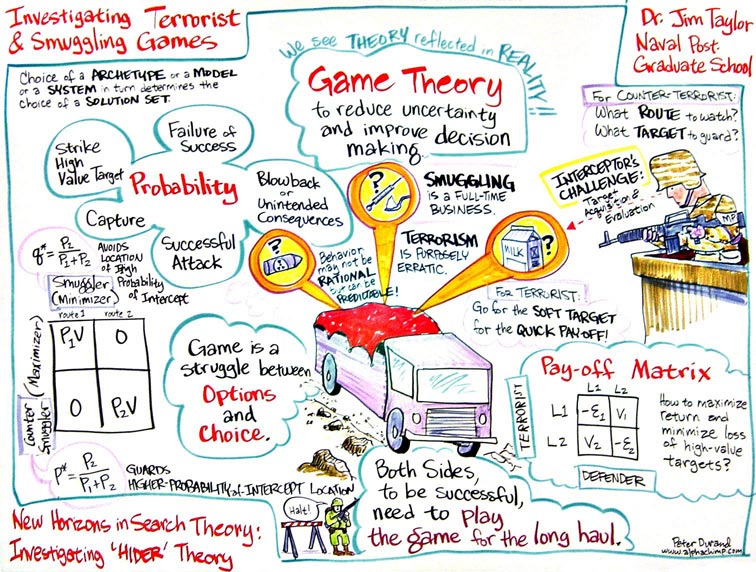 Investigating Terrorist
& Smuggling Games
Choice of a ARCHETYPE or a MODEL
or a SYSTEM in turn determines the
choice of a SOLUTION SET.
We see THEORY reflected in REALITY!!
Game Theory
to reduce uncertainty
and improve decision
making.
Dr. Jim Taylor
Naval Post-
Graduate School
For COUNTER-TERRORIST:
What ROUTE to watch?
What TARGET to guard?
INTERCEPTOR'S
CHALLENGE:
Target
Acquisition &
Evaluation
MP
Probability
Strike
High
Value Target
Failure of
Success
Blowback
or
Unintended
Consequences
Capture
Successful
Attack
?
?
?
MILK
SMUGGLING
is a FULL-TIME
BUSINESS.
TERRORISM
is PURPOSELY
ERRATIC.
Behavior
may not be
RATIONAL
but can be
PREDICTABLE!
For TERRORIST:
Go for the SOFT TARGET
for the QUICK PAY-OFF!
q* = P₂ / P₁+P₂
AVOIDS
LOCATION
of High
Probability
of Intercept
Smuggler
(Minimizer)
route 1 route 2
Counter Smuggler (Maximizer)
P₁V 0
0 P₂V
P* = P₂ / P₁+P₂
GUARDS
HIGHER-PROBABILITY-of-INTERCEPT LOCATION
Game is a
struggle between
Options
and
Choice.
Pay-off Matrix
L1 L2
TERRORIST
L1 -Ɛ₁ V₁
L2 V₂ -Ɛ₂
DEFENDER
How to maximize
return and
minimize loss
of high-value
targets?
Both Sides,
to be successful,
need to play
the game for the long haul.
Halt!
New Horizons in Search Theory:
Investigating 'HIDER' Theory
Peter Durand
www.alphachimp.com